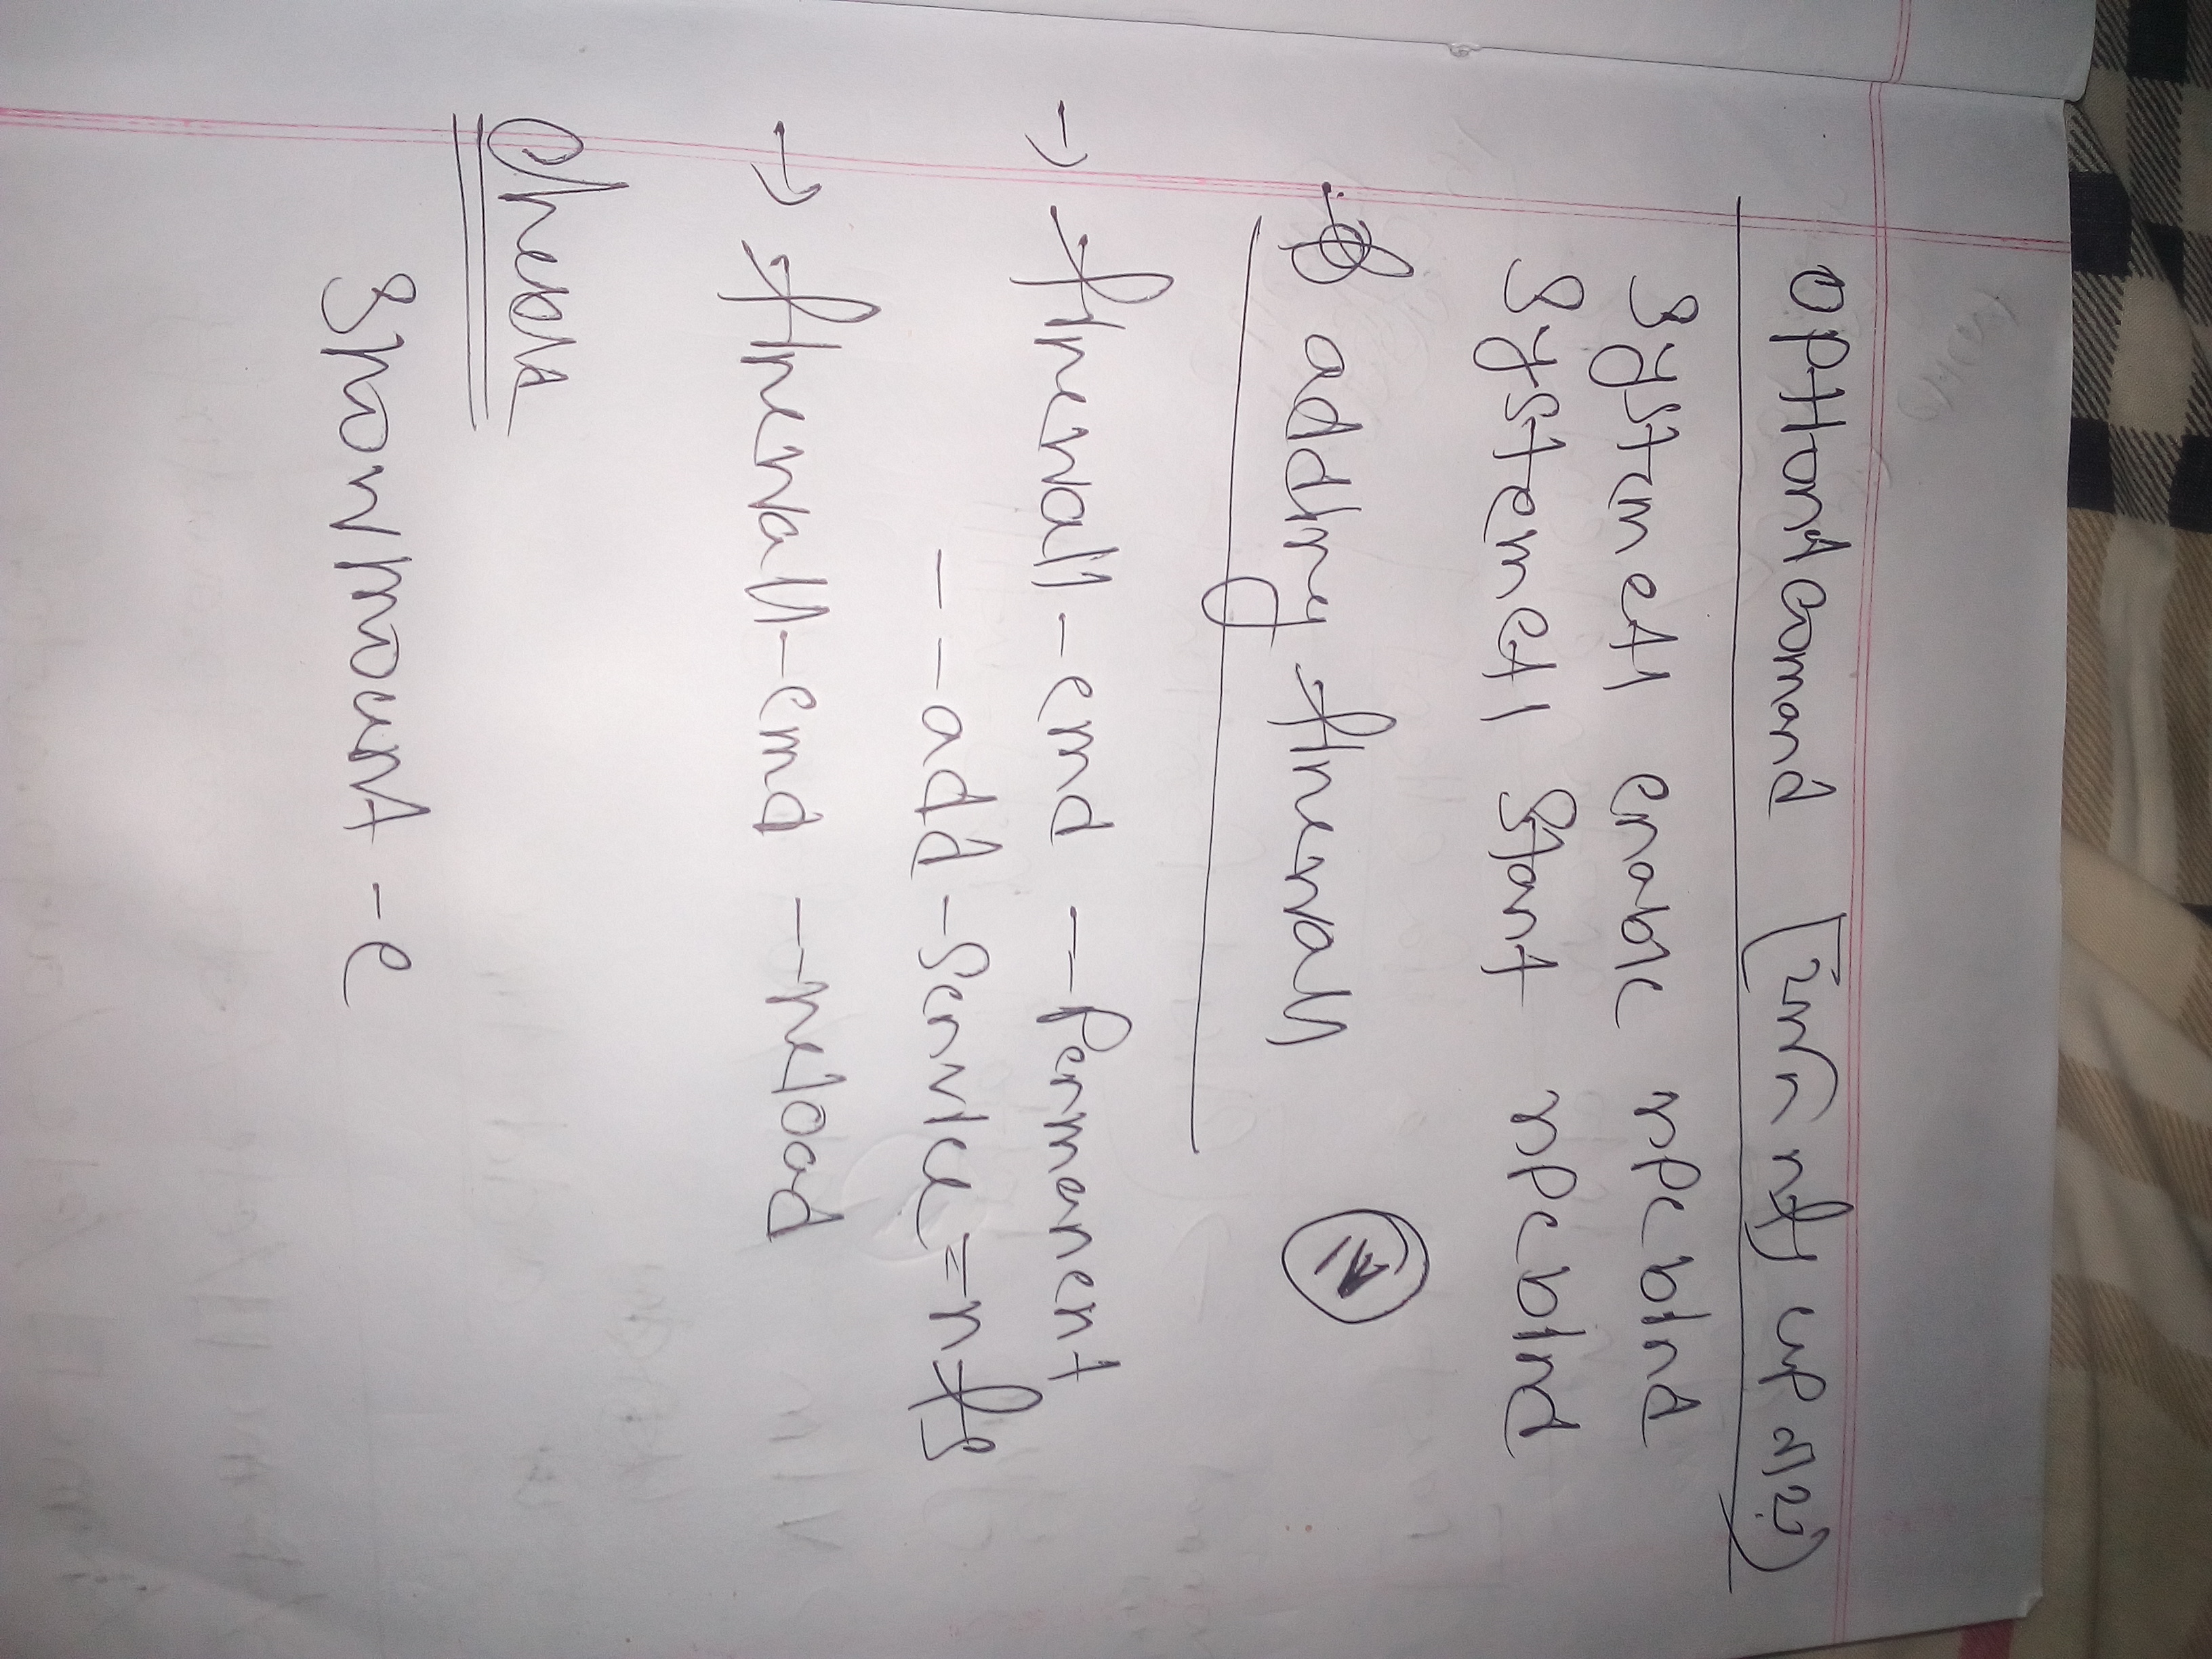 optional comand
systemctl enable rpcbind
systemctl start rpcbind
adding firewall
→ firewall-cmd --permanent
--add-service=nfs
→ firewall-cmd --reload
check
showmount -e